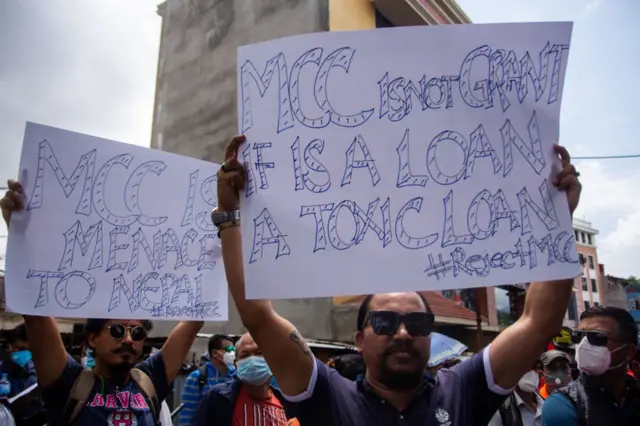 MCC IS
MENACE
TO NEPAL
MCC ISNOT GRANT
IF IS A LOAN
A TOXIC LOAN
#RejectMCC
HAVARD